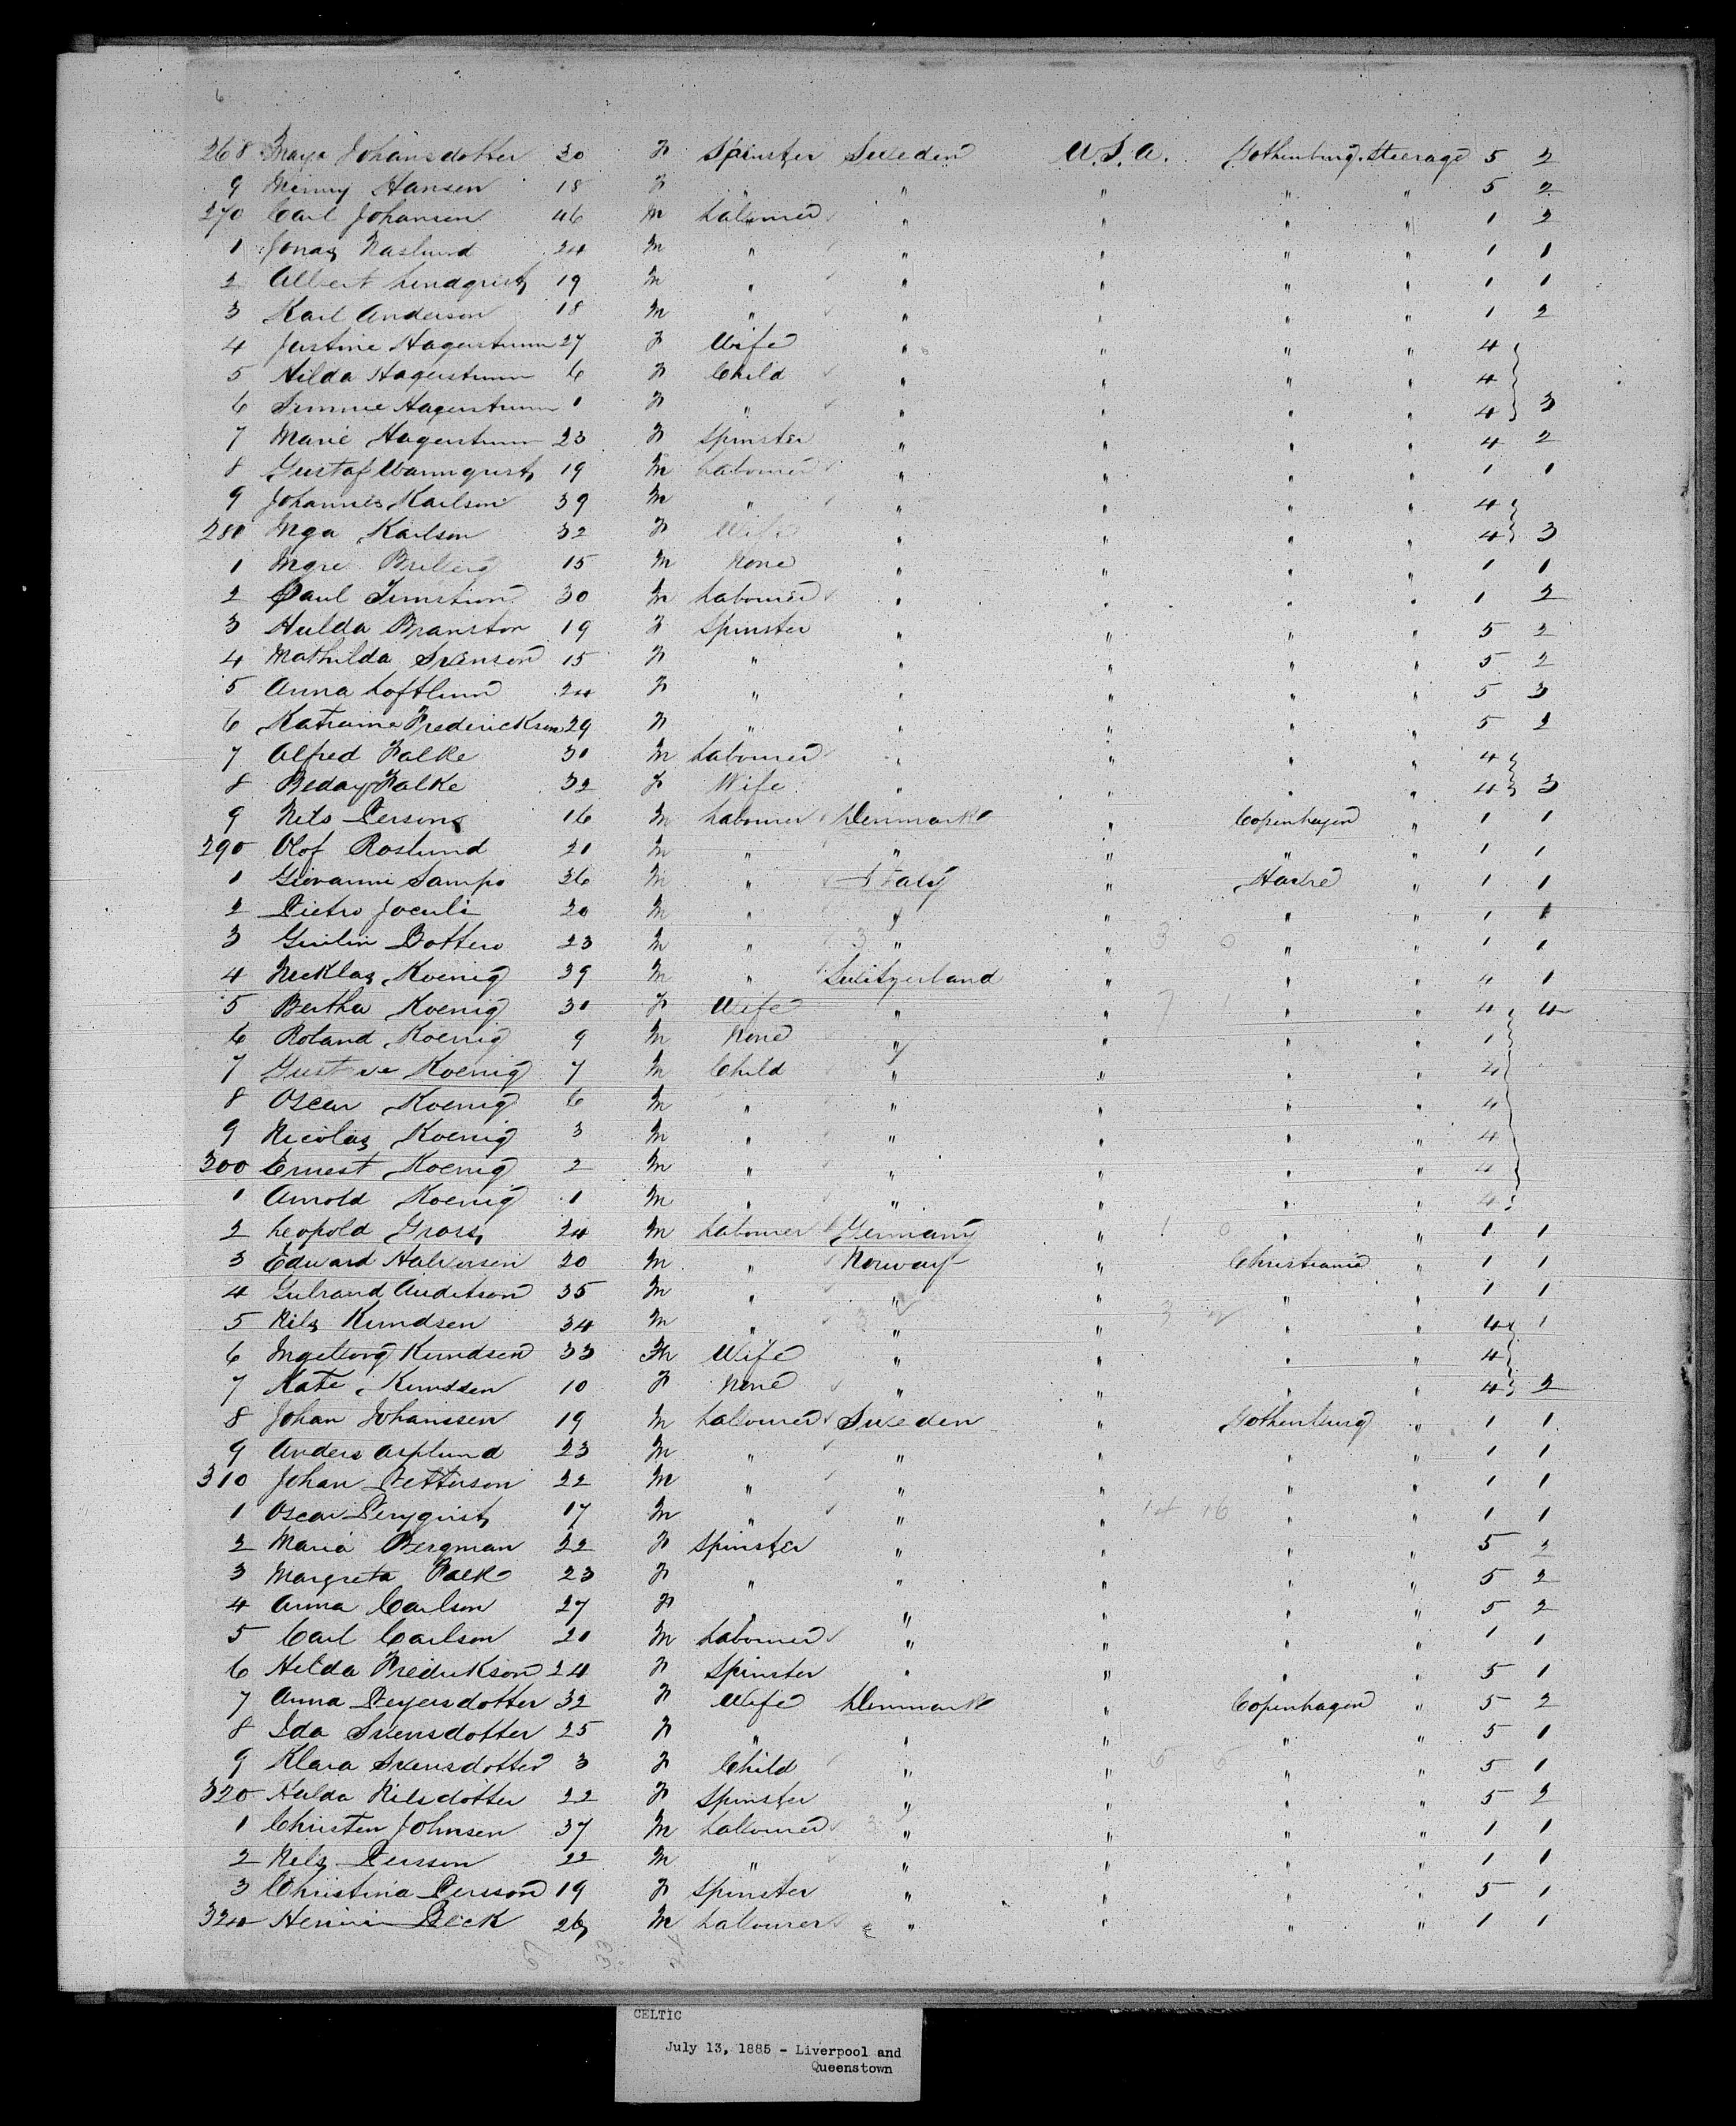 6
268 Maya Johansdotter 20 F Spinster Sweden U.S.A. Gothenburg Steerage 5 2
9 Minny Hansen 18 F " " " " " 5 2
270 Carl Johansen 46 M Labourer " " " " 1 2
1 Jonas Naslund 24 M " " " " " 1 1
2 Albert Lindqvist 19 M " " " " " 1 1
3 Karl Anderson 18 M " " " " " 1 2
4 Justine Hagerstrum 27 F Wife " " " " 4
5 Hilda Hagerstrum 6 F Child " " " " 4
6 Hagerstrum 1 F " " " " " 4 3
7 Marie Hagerstrum 23 F Spinster " " " " 4 2
8 Gustaf Wannquist 19 M Labourer " " " " 1 1
9 Johannes Karlson 39 M " " " " " 4
280 Inga Karlson 32 F Wife " " " " 4 3
1 15 M None " " " " 1 1
2 Paul 30 M Labourer " " " " 1 2
3 Hulda Branston 19 F Spinster " " " " 5 2
4 Mathilda Svenson 15 F " " " " " 5 2
5 Anna Loftlund 24 F " " " " " 5 3
6 Katraine Frederickson 29 F " " " " " 5 2
7 Alfred Falke 30 M Labourer " " " " 4
8 Beday Falke 32 F Wife " " " " 4 3
9 Nels Persons 16 M Labourer Denmark " Copenhagen " 1 1
290 Olof Roslund 21 M " " " " " 1 1
1 Giovanni Sampo 26 M " Italy " Havre " 1 1
2 Pietro Joculi 20 M " " " " " 1 1
3 Giulin Bottero 23 M " 3 " " 3 0 " " 1 1
4 Necklas Koenig 39 M " Switzerland " " " 4 1
5 Bertha Koenig 30 F Wife " " 7 1 " " 4 4
6 Roland Koenig 9 M None " " " " 1
7 Gustave Koenig 7 M Child " " " " 4
8 Oscar Koenig 6 M " " " " " 4
9 Nicolas Koenig 3 M " " " " " 4
300 Ernest Koenig 2 M " " " " " 4
1 Arnold Koenig 1 M " " " " " 4
2 Leopold Grass 24 M Labourer Germany " 1 0 " " 1 1
3 Edward Halversen 20 M " Norway " Christiania " 1 1
4 Gulrand Auditson 35 M " " " " " 1 1
5 Nils Kundsen 34 M " 3 " " 3 2 " " 4 1
6 Ingeborg Kundsen 33 F Wife " " " " 4
7 Kate Kundsen 10 F None " " " " 4 2
8 Johan Johanssen 19 M Labourer Sweden " Gothenburg " 1 1
9 Anders Asplund 23 M " " " " " 1 1
310 Johan Petterson 22 M " " " " " 1 1
1 Oscar Peryquist 17 M " " " 14 16 " " 1 1
2 Maria Bergman 22 F Spinster " " " " 5 2
3 Margreta Falk 23 F " " " " " 5 2
4 Anna Carlson 27 F " " " " " 5 2
5 Carl Carlson 20 M Labourer " " " " 1 1
6 Hilda Fredrikson 24 F Spinster " " " " 5 1
7 Anna Peyersdotter 32 F Wife Denmark " Copenhagen " 5 2
8 Ida Svensdotter 25 F " " " " " 5 1
9 Klara Svensdotter 3 F Child " " 5 5 " " 5 1
320 Hulda Nilsdotter 22 F Spinster " " " " 5 2
1 Christen Johnsen 37 M Labourer 3 " " " " 1 1
2 Nels Persson 22 M " " " " " 1 1
3 Christina Persson 19 F Spinster " " " " 5 1
324 Beck 26 M Labourer " " " " 1 1
CELTIC
July 13, 1885 - Liverpool and
Queenstown